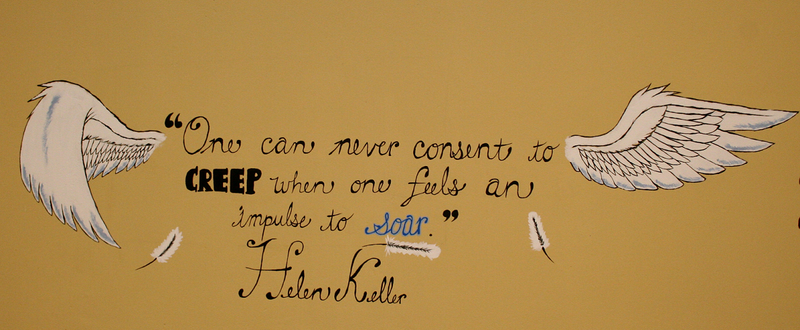 “One can never consent to
CREEP when one feels an
impulse to soar.”
Helen Keller